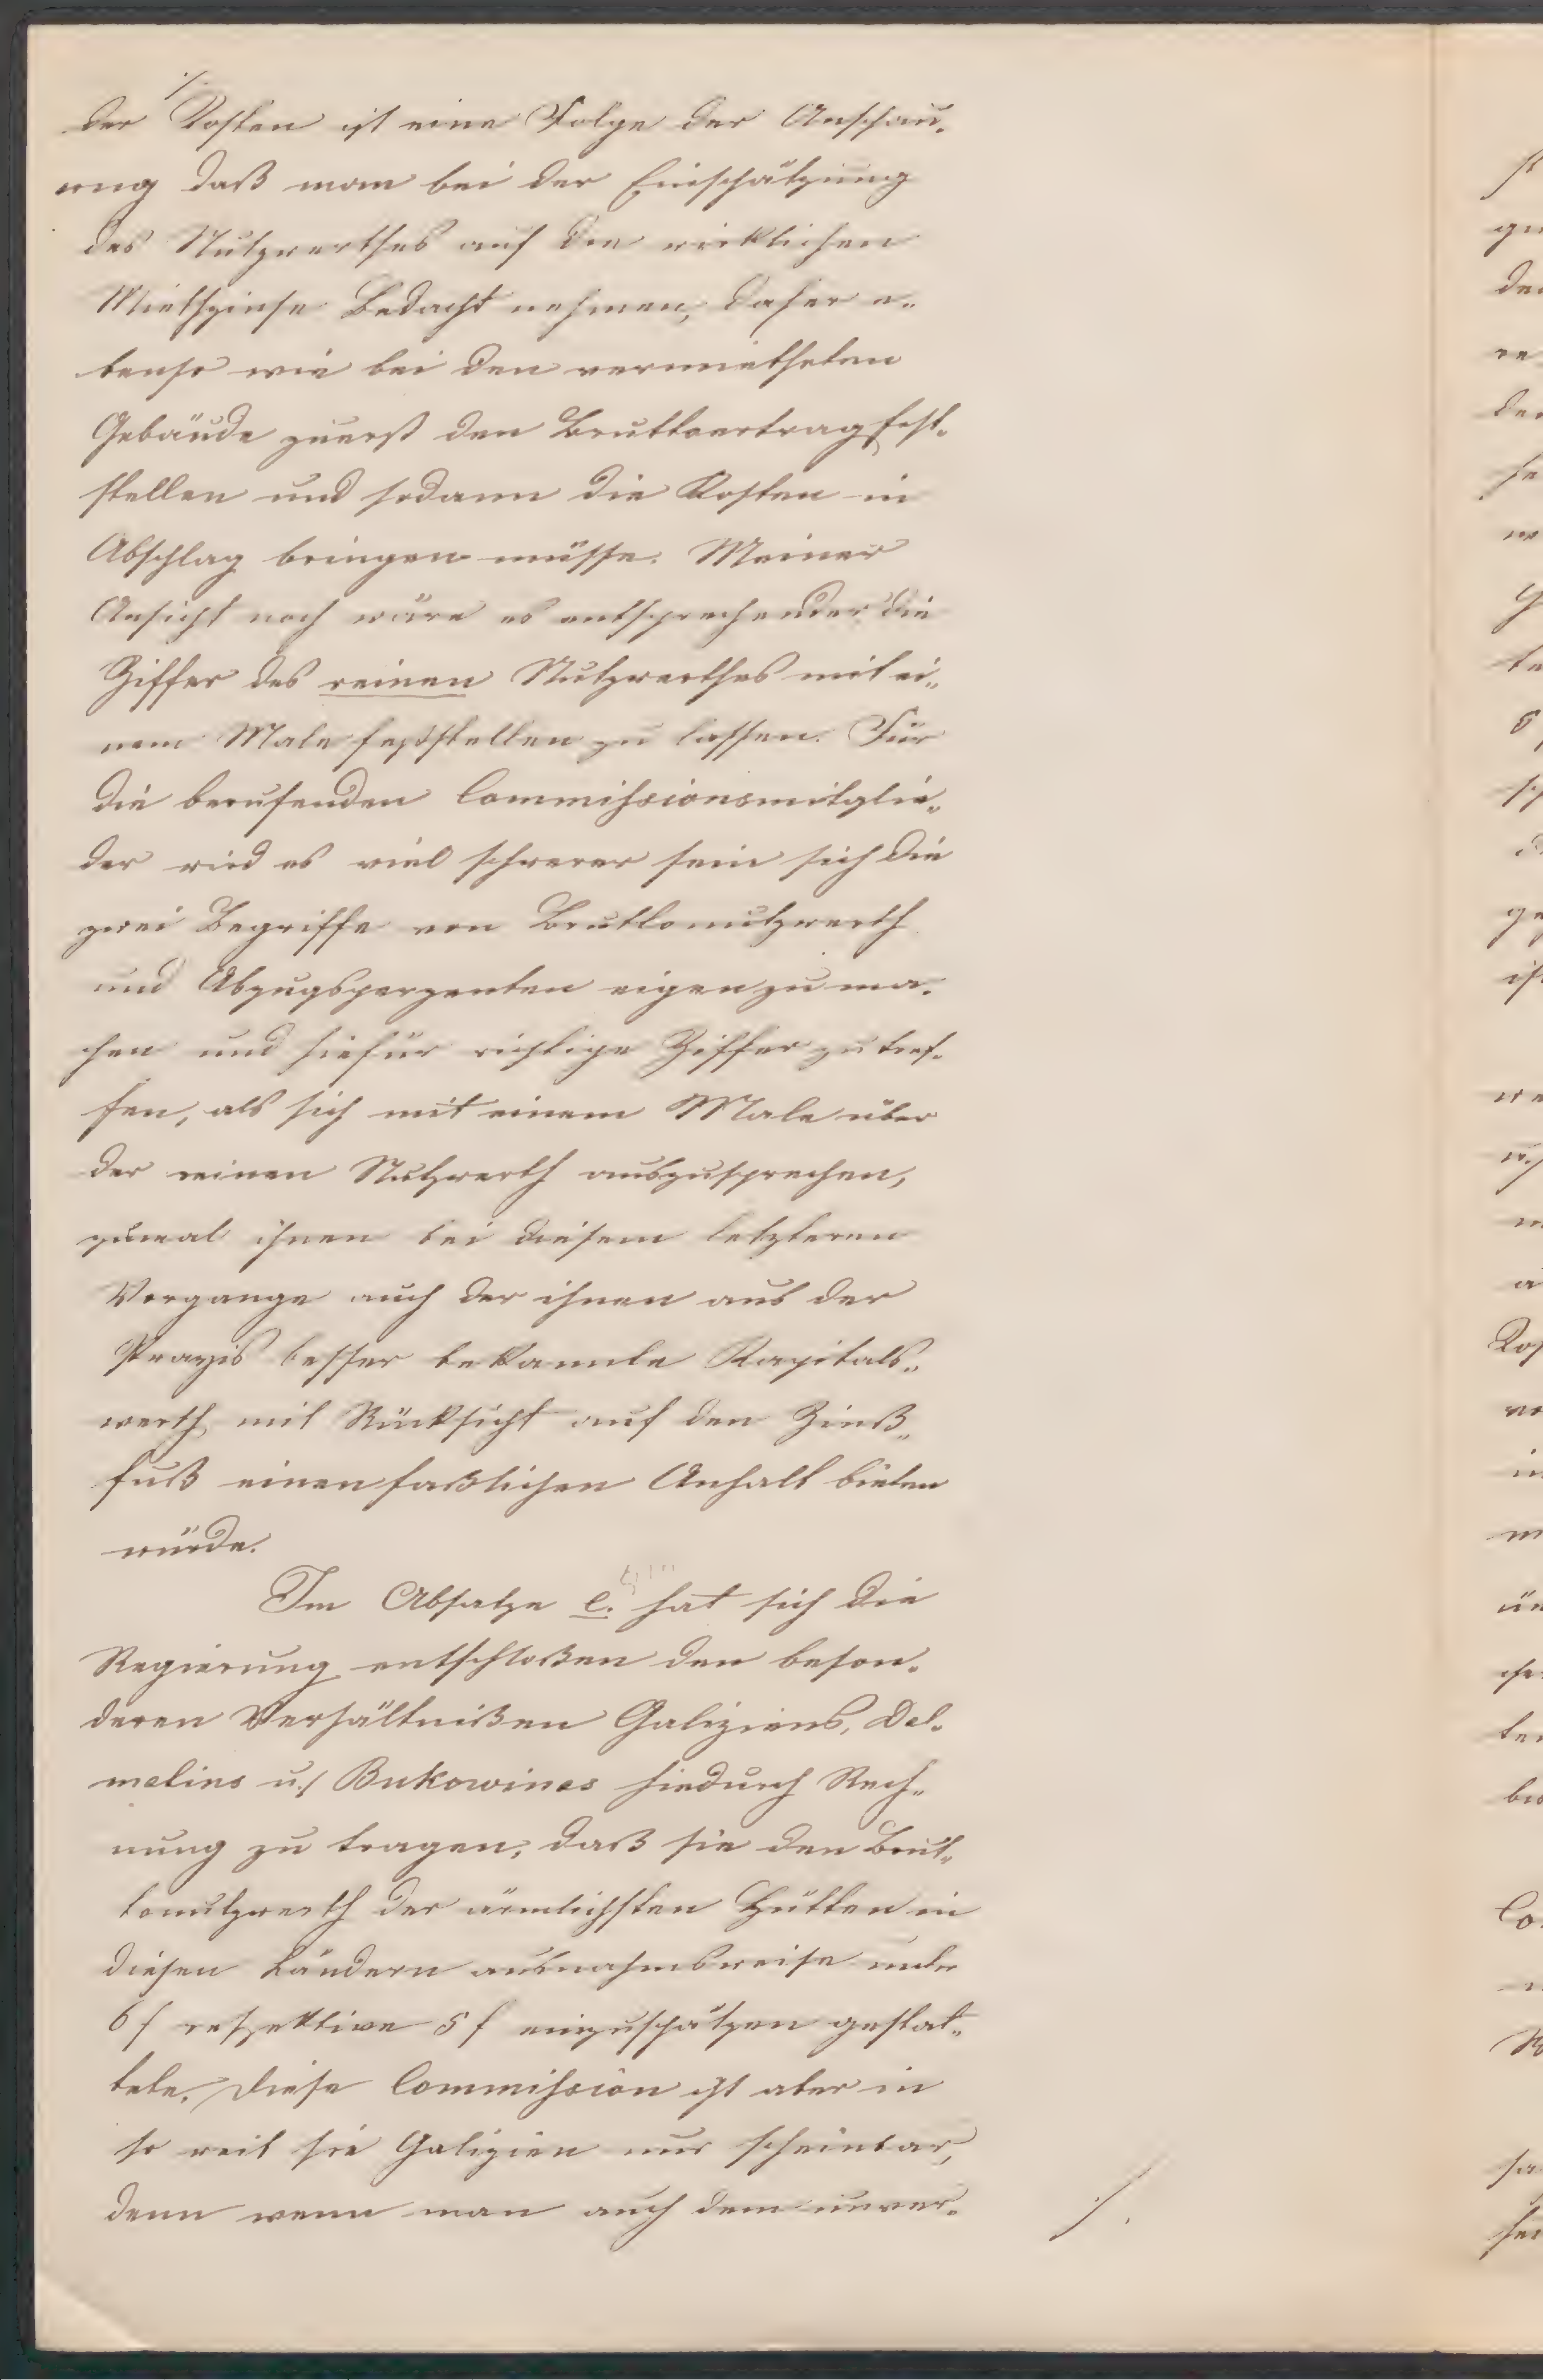 ./.
der Kosten ist eine Folge der Anschau„
ung daß man bei der Einschätzung
des Nutzwerthes auf die wirklichen
Miethzinse Bedacht nehmen, daher e„
benso wie bei den vermietheten
Gebäude zuerst den Bruttoertrag fest„
stellen und sodann die Kosten in
Abschlag bringen müsse. Meiner
Ansicht nach wäre es entsprechender die
Ziffer des reinen Nutzwerthes mit ei„
nem Male feststellen zu lassen. Für
die berufenden Commissionsmitglie„
der wird es viel schwerer sein sich die
zwei Begriffe von Bruttonutzwerth
und Abzugsperzenten eigen zu ma„
chen und hiefür richtige Ziffer zu tref„
fen, als sich mit einem Male über
der reinen Nutzwerth auszusprechen,
zumal ihnen bei diesem letzteren
Vorgange auch der ihnen aus der
Praxis besser bekannte Kapitals„
werth mit Rücksicht auf den Zinß„
fuß einen faßlichen Anhalt bieten
würde.
Im Absatze e. hat sich die
Regierung entschloßen den beson„
deren Verhältnißen Galiziens, Dal„
matins u./ Bukowinas hiedurch Rech„
nung zu tragen, daß sie den Brut„
tonutzwerth der ärmlichsten Hütten in
diesen Ländern ausnahmsweise unter
6 f respektive 5 f einzuschätzen gestat„
tete. Diese Commission ist aber in
so weit sie Galizien nur scheinbar,
denn wenn man auch dem unver„
./.